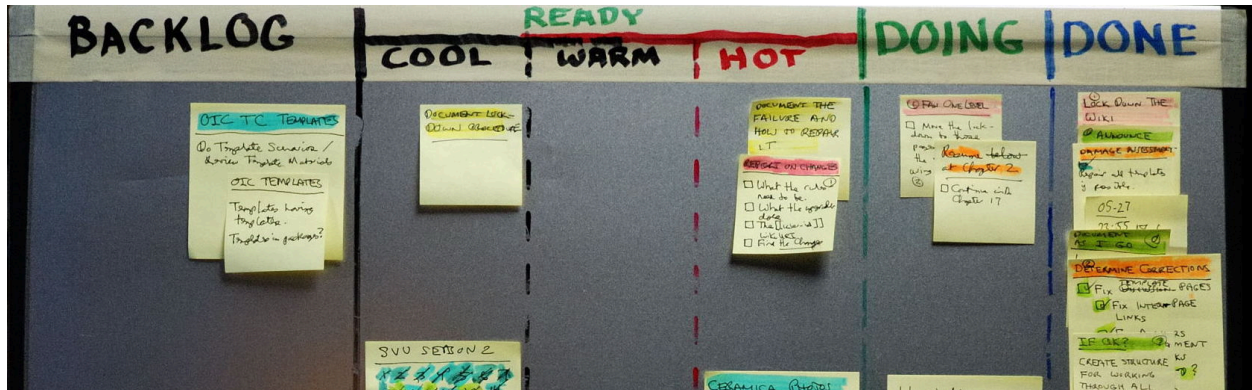 BACKLOG
READY
COOL
WARM
HOT
DOING
DONE
OIC TC TEMPLATES
Do Template Scenario /
Review Template Materials
OIC TEMPLATES
Templates having
templates.
Templates in packages?
DOCUMENT LOCK-
DOWN PROCEDURE
SVU SESSION 2
DOCUMENT THE
FAILURE AND
HOW TO REPAIR
IT
REPORT ON CHANGES
What the rules
need to be.
What the upgrade
does
The
Find the Change
CERAMICA PHOTOS
FAN ONE LEVEL
Move the lock-
down to those
the
Resume below
at Chapter 2
Continue with
Chapter 17
LOCK DOWN THE
WIKI
ANNOUNCE
DAMAGE ASSESSMENT
Repair all templates
if possible.
05-27
22:55
DOCUMENT
AS I GO
DETERMINE CORRECTIONS
FIX TEMPLATE PAGES
FIX INTER-PAGE
LINKS
IF OK?
CREATE STRUCTURE
FOR WORKING
THROUGH ALL